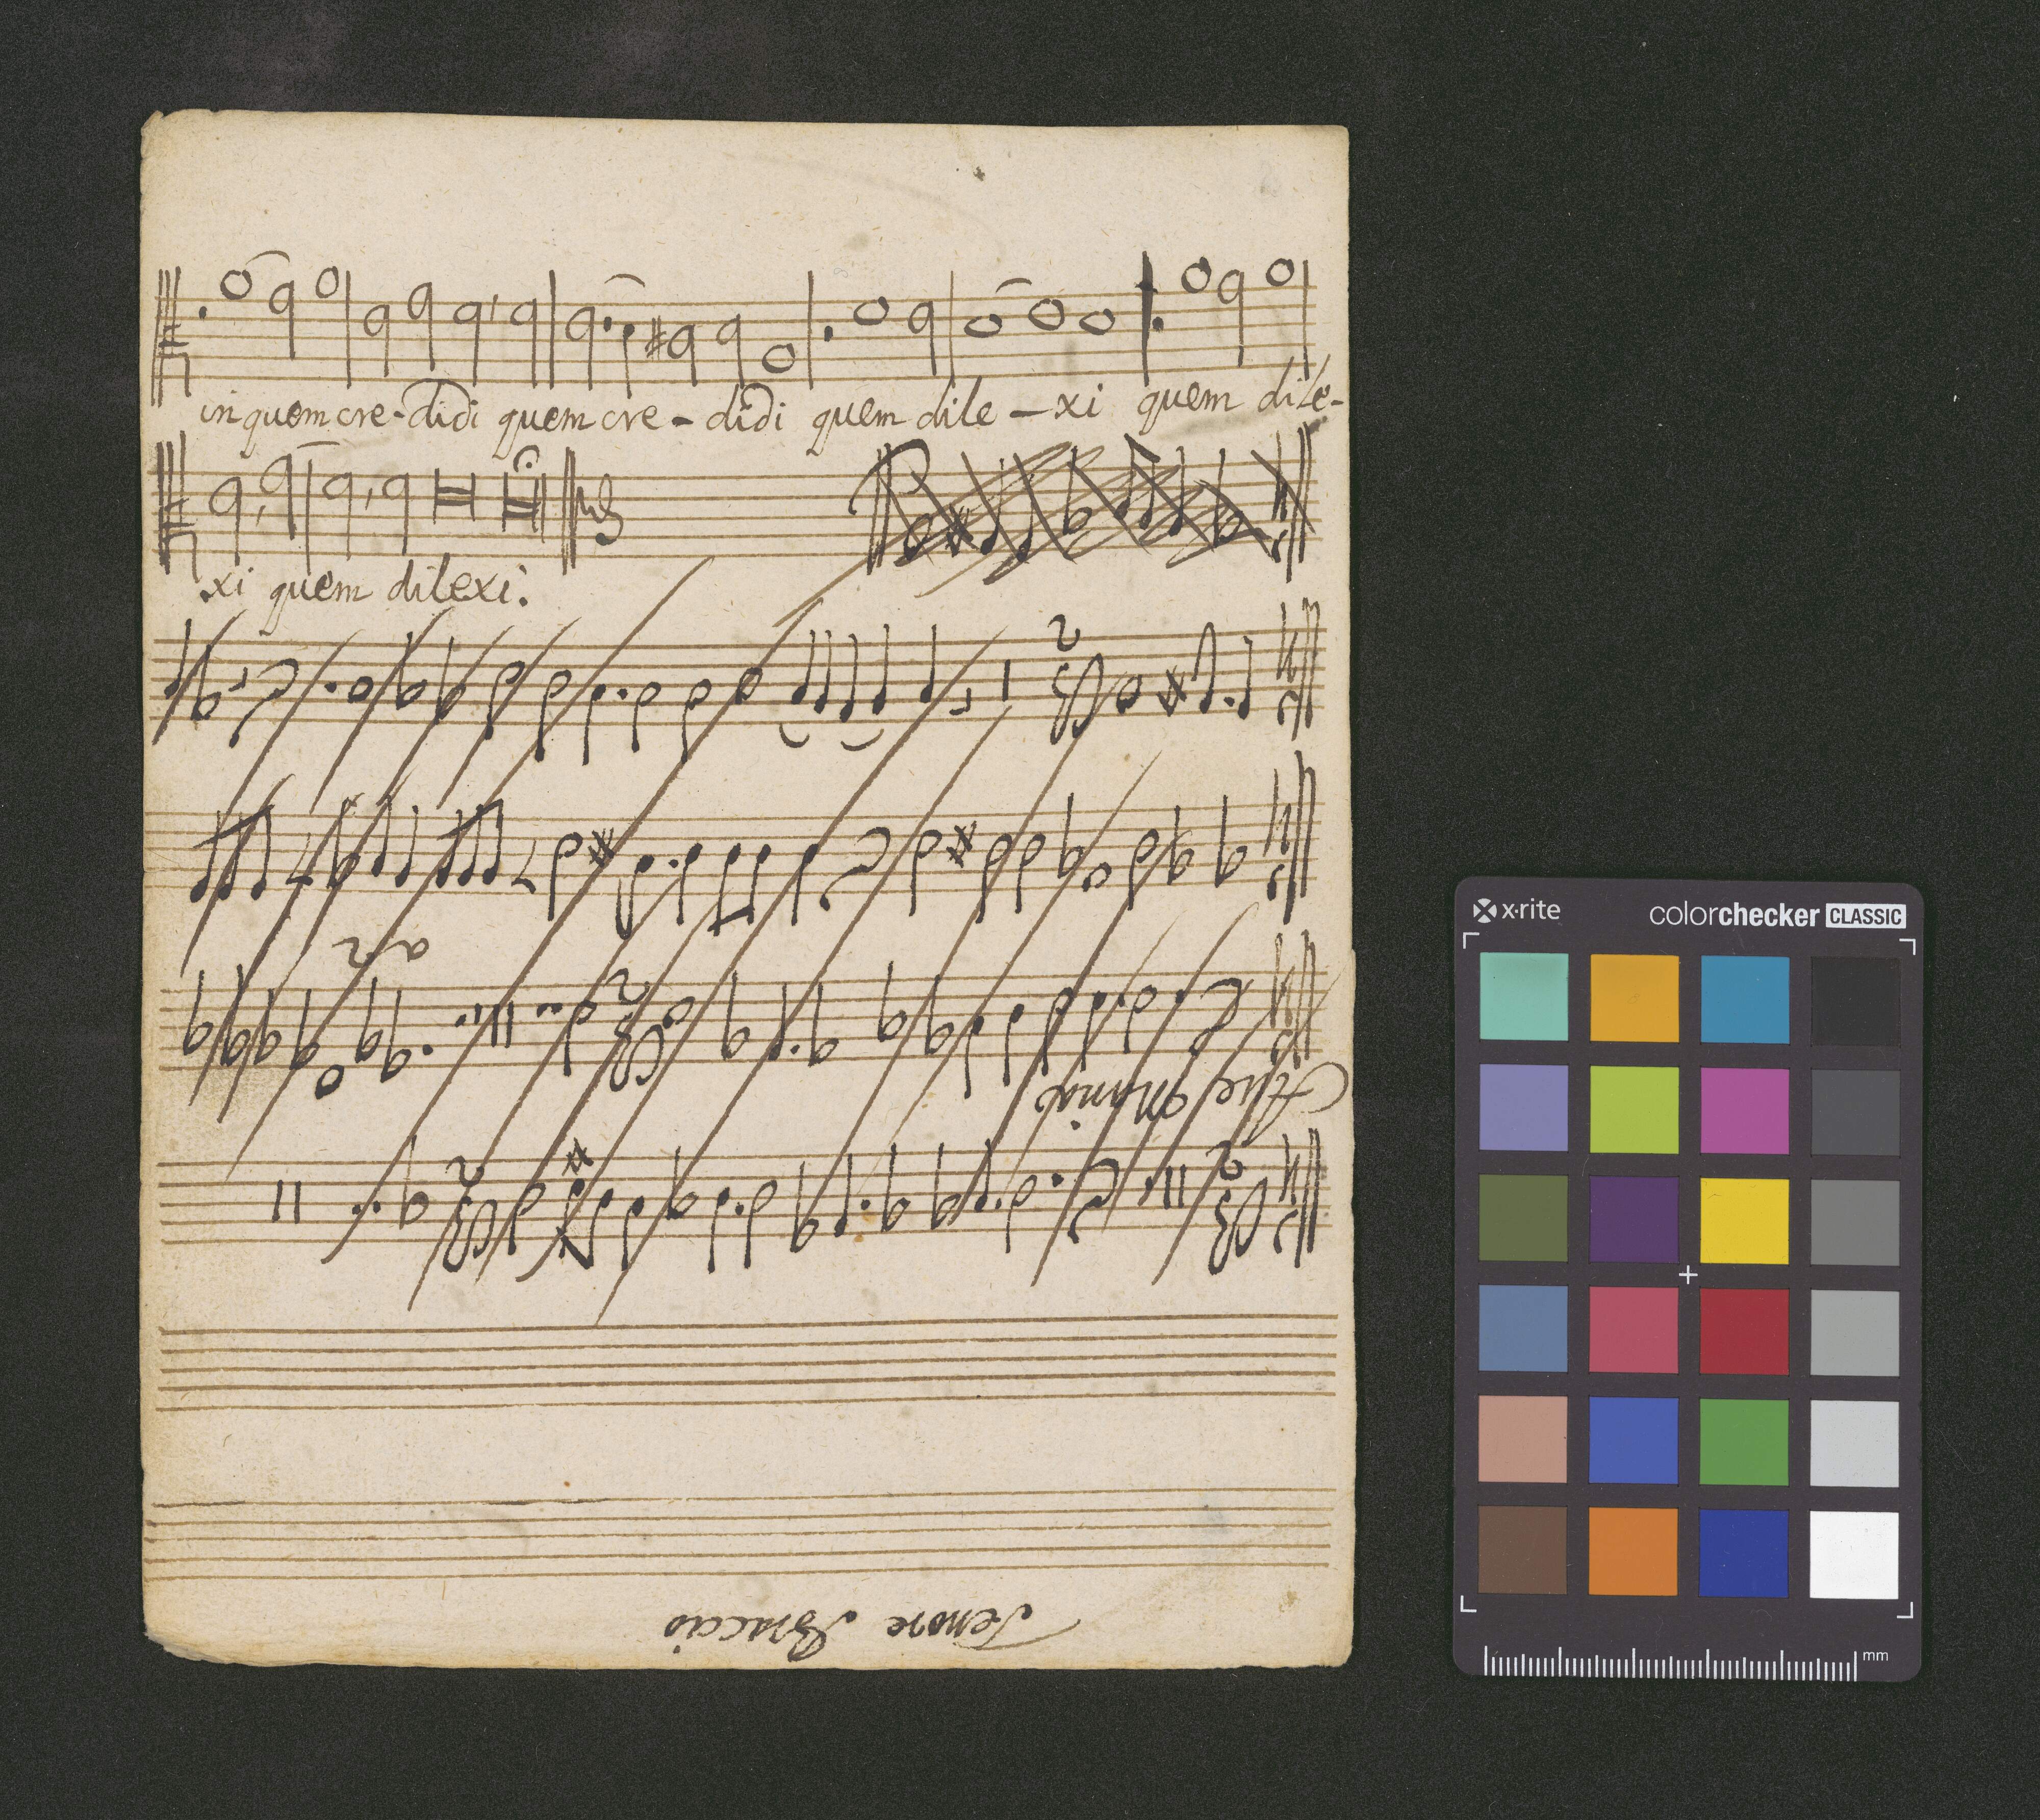 in quem cre-didi quem cre-didi quem dile-xi quem dile-
xi quem dilexi.
Ave Maria
Tenore
x-rite
colorchecker CLASSIC
mm